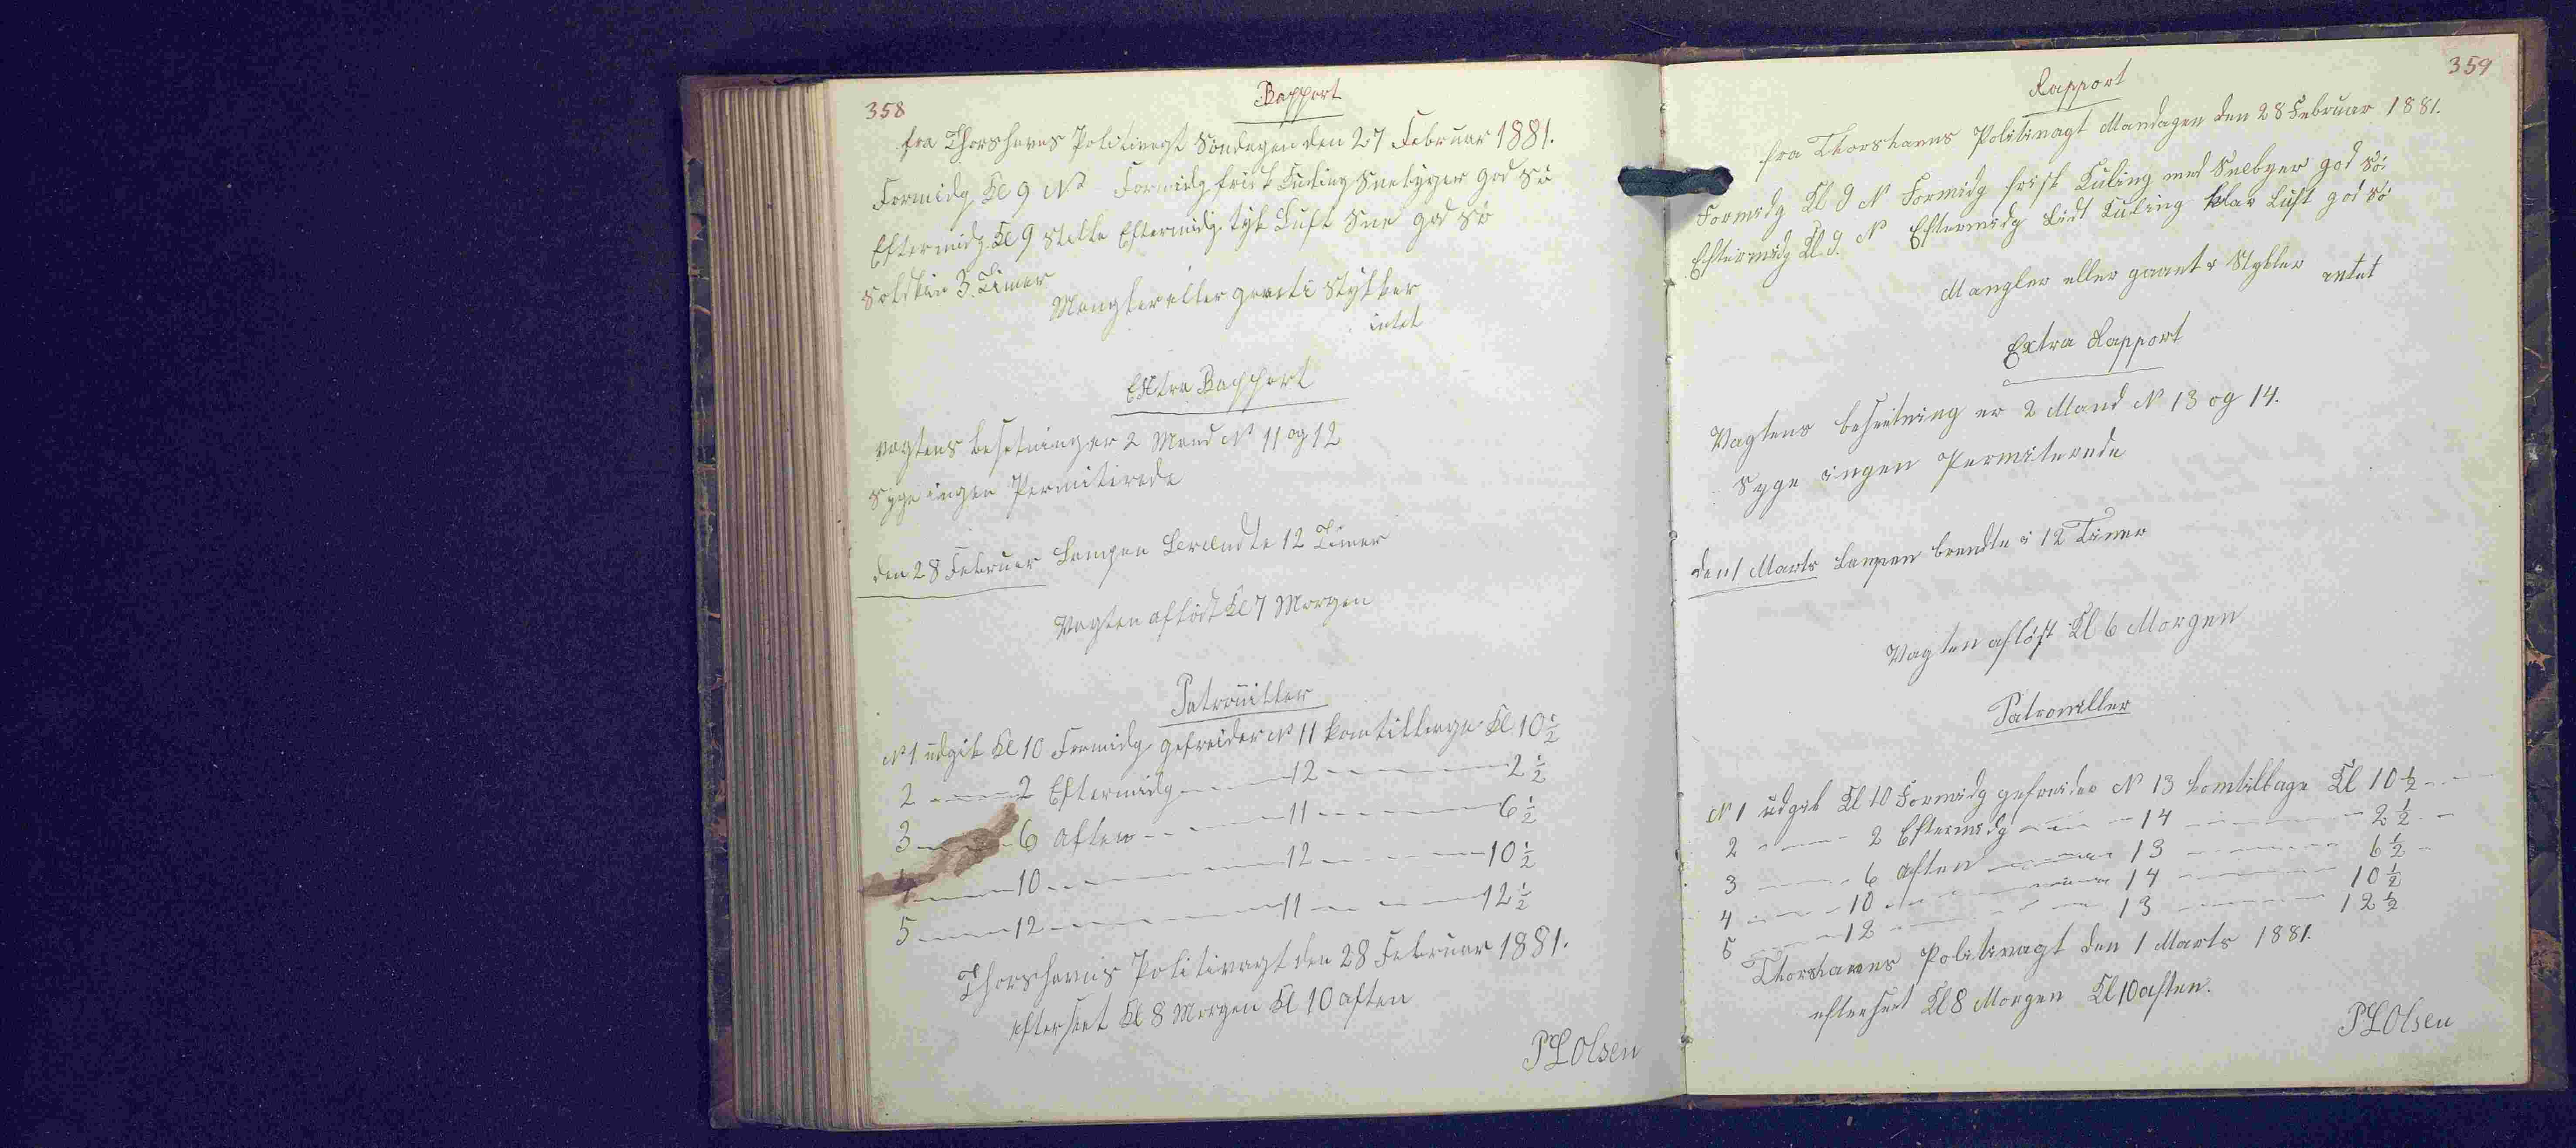 358
Rapport
fra Thorshavns Politivagt Søndagen den 27 Februar 1881.
Formidg Kl 9 N Formidg frisk Kuling Snebyger god Sø
Eftermidg Kl 9 Stille Eftermidg tyk Luft Sne god Sø
Solskin 3 Timer
Mangler eller gaaet i Stykker
intet
Extra Rapport
Vagtens besetning er 2 Mand N 11 og 12
Syge ingen Permiterede
den 28 Februar Lampen brændte 12 Timer
Vagten afløst Kl 7 Morgen
Patrouiller
N 1 udgik Kl 10 Formidg gefreider N 11 kom tilbage Kl 10½
2 — 2 Eftermidg — 12 — 2½
3 — 6 Aften — 11 — 6½
4 — 10 — 12 — 10½
5 — 12 — 11 — 12½
Thorshavns Politivagt den 28 Februar 1881.
efterseet Kl 8 Morgen Kl 10 aften
PLOlsen
359
Rapport
fra Thorshavns Politivagt Mandagen den 28 Februar 1881.
Formidg Kl 9 N Formidg frisk Kuling med Snebyer god Sø
Eftermidg Kl 9. N Eftermidg Lidt Kuling klar Luft god Sø
Mangler eller gaaet i Stykker
intet
Extra Rapport
Vagtens besætning er 2 Mand N 13 og 14.
Syge ingen Permiterede
den 1 Marts Lampen brendte i 12 Timer
Vagten afløst Kl 6 Morgen
Patrouiller
N 1 udgik Kl 10 Formidg gefreider N 13 kom tilbage Kl 10½
2 — 2 Eftermidg — 14 — 2½
3 — 6 Aften — 13 — 6½
4 — 10 — 14 — 10½
5 — 12 — 13 — 12½
Thorshavns Politivagt den 1 Marts 1881.
efterseet Kl 8 Morgen Kl 10 aften.
PLOlsen